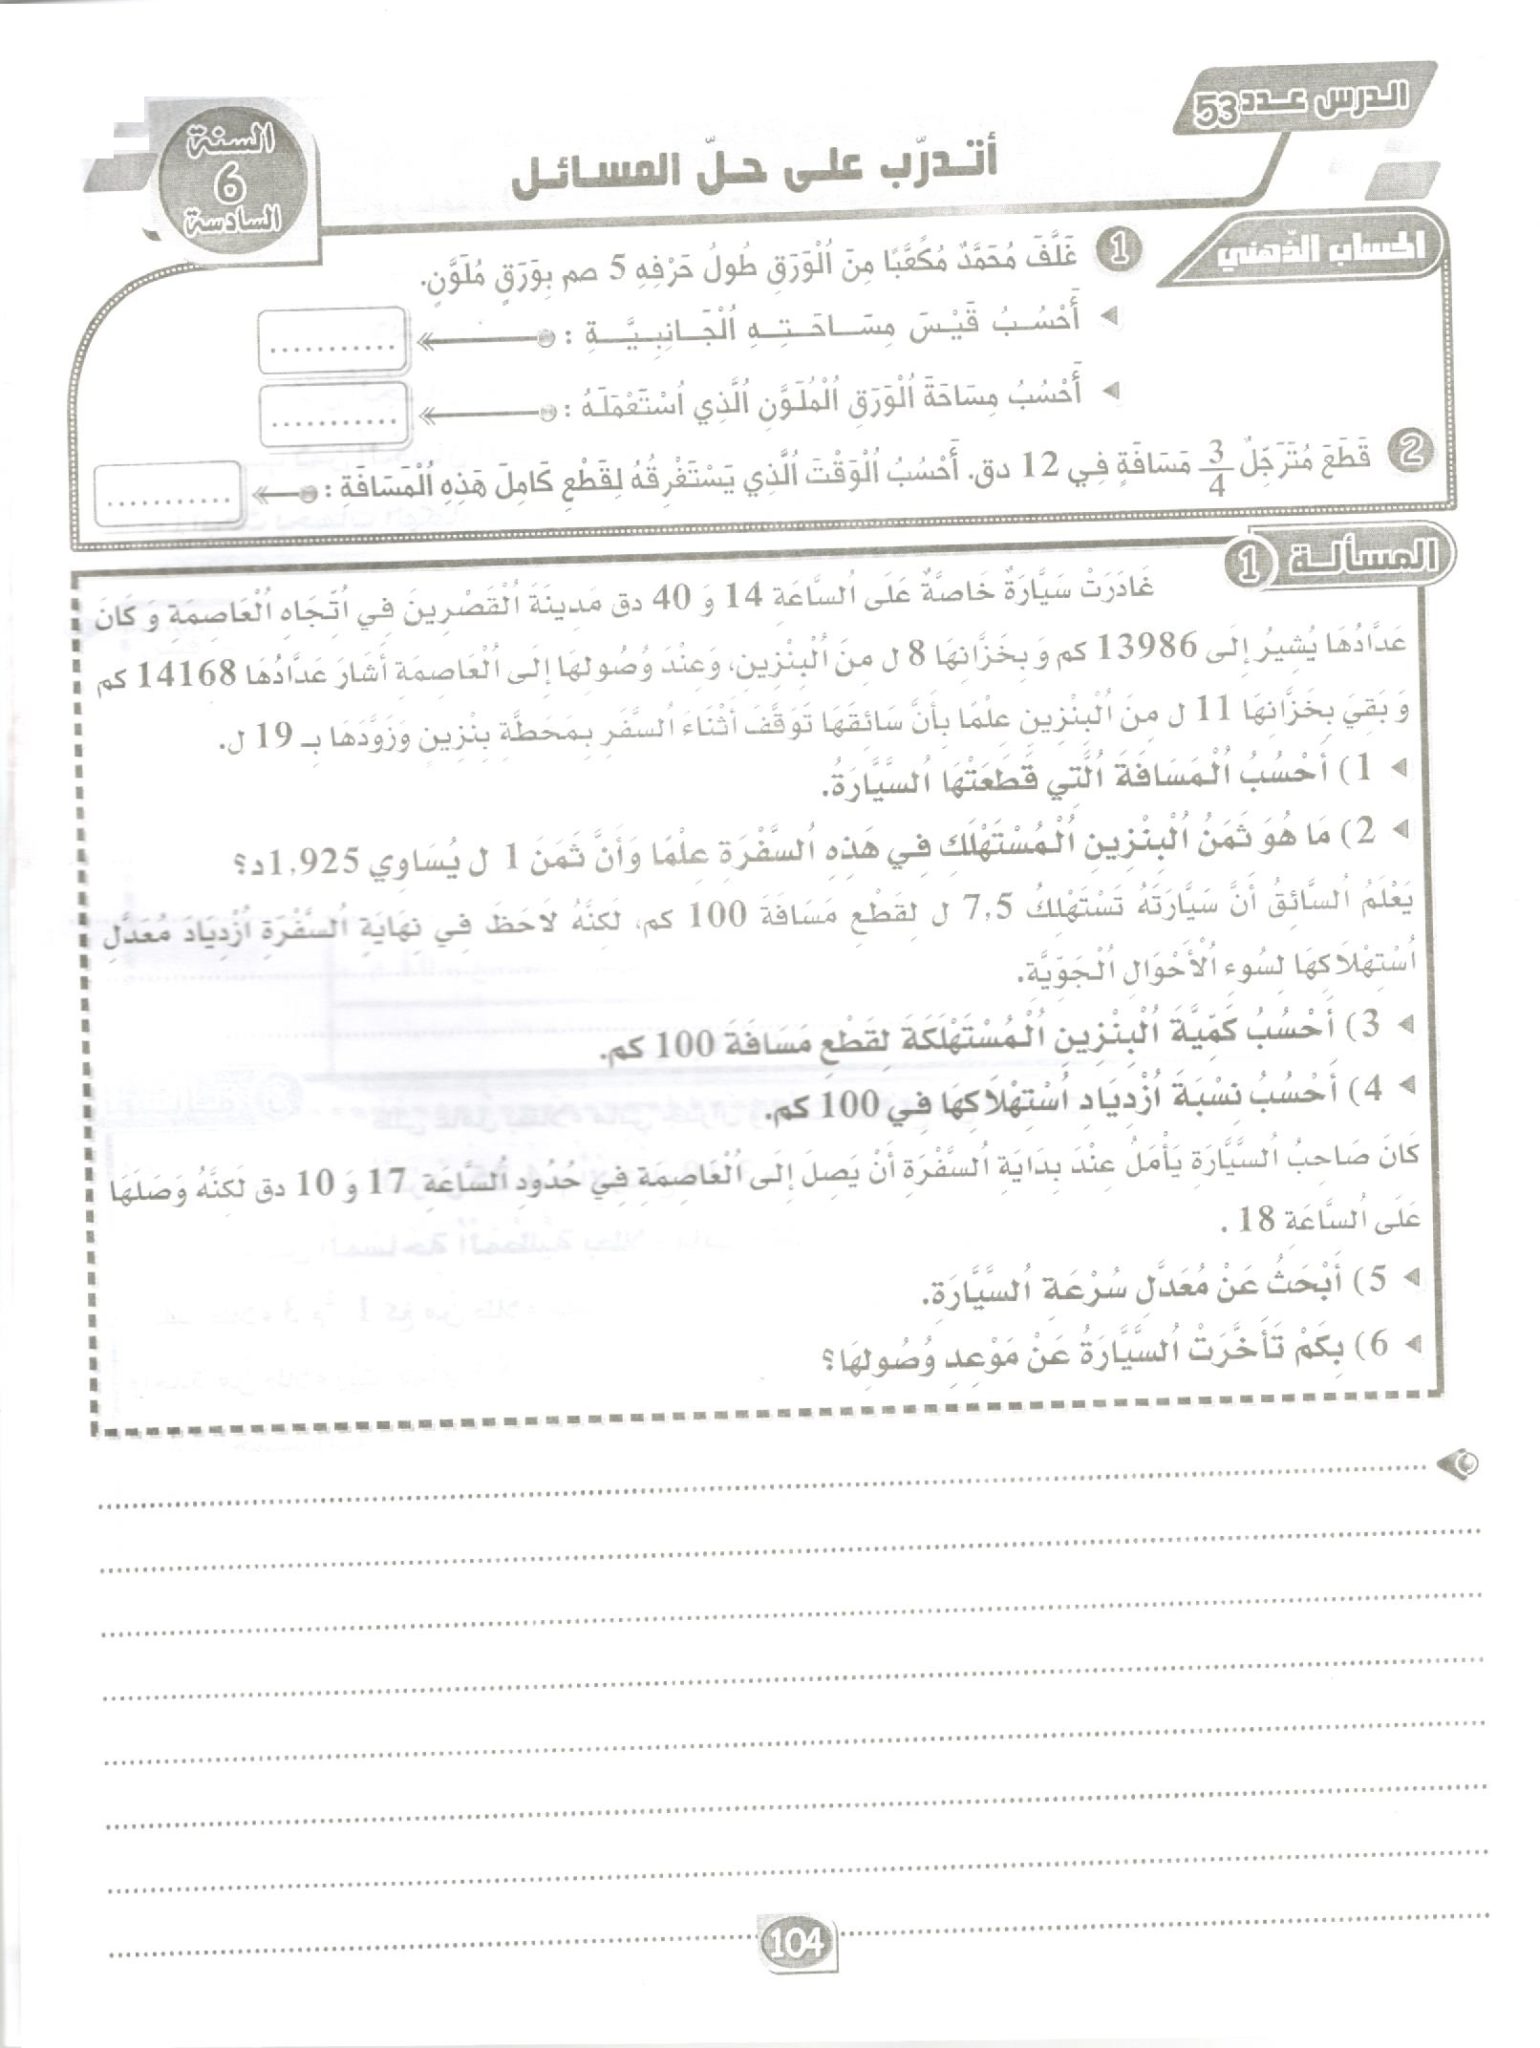 الدرس عدد 53
السنة
6
السادسة
أتدرّب على حلّ المسائل
الحساب الذّهني
1 غَلَّفَ مُحَمَّدٌ مُكَعَّبًا مِنَ اُلْوَرَقِ طُولُ حَرْفِهِ 5 صم بِوَرَقٍ مُلَوَّنٍ.
أَحْسُبُ قَيْسَ مِسَاحَتِهِ اُلْجَانِبِيَّةِ : ..........
أَحْسُبُ مِسَاحَةَ اُلْوَرَقِ اُلْمُلَوَّنِ اُلَّذِي اُسْتَعْمَلَهُ : ..........
2 قَطَعَ مُتَرَجِّلٌ 3/4 مَسَافَةٍ فِي 12 دق. أَحْسُبُ اُلْوَقْتَ اُلَّذِي يَسْتَغْرِقُهُ لِقَطْعِ كَامِلَ هَذِهِ اُلْمَسَافَة : ..........
المسألة 1
غَادَرَتْ سَيَّارَةٌ خَاصَّةٌ عَلَى اُلسَّاعَةِ 14 و 40 دق مَدِينَةَ اُلْقَصْرِينَ فِي اُتِّجَاهِ اُلْعَاصِمَةِ وَ كَانَ
عَدَّادُهَا يُشِيرُ إِلَى 13986 كم وَ بِخَزَّانِهَا 8 ل مِنَ اُلْبِنْزِينِ، وَعِنْدَ وُصُولِهَا إِلَى اُلْعَاصِمَةِ أَشَارَ عَدَّادُهَا 14168 كم
وَ بَقِيَ بِخَزَّانِهَا 11 ل مِنَ اُلْبِنْزِينِ عِلْمًا بِأَنَّ سَائِقَهَا تَوَقَّفَ أَثْنَاءَ اُلسَّفَرِ بِمَحَطَّةِ بِنْزِينٍ وَزَوَّدَهَا بِـ 19 ل.
1) أَحْسُبُ اُلْمَسَافَةَ اُلَّتِي قَطَعَتْهَا اُلسَّيَّارَةُ.
2) مَا هُوَ ثَمَنُ اُلْبِنْزِينِ اُلْمُسْتَهْلَكِ فِي هَذِهِ اُلسَّفْرَةِ عِلْمًا وَأَنَّ ثَمَنَ 1 ل يُسَاوِي 1,925د؟
يَعْلَمُ اُلسَّائِقُ أَنَّ سَيَّارَتَهُ تَسْتَهْلِكُ 7,5 ل لِقَطْعِ مَسَافَةَ 100 كم، لَكِنَّهُ لَاحَظَ فِي نِهَايَةِ اُلسَّفْرَةِ اُزْدِيَادَ مُعَدَّلِ
اُسْتِهْلَاكِهَا لِسُوءِ اُلْأَحْوَالِ اُلْجَوِّيَّةِ.
3) أَحْسُبُ كَمِّيَّةَ اُلْبِنْزِينِ اُلْمُسْتَهْلَكَةَ لِقَطْعِ مَسَافَةَ 100 كم.
4) أَحْسُبُ نِسْبَةَ اُزْدِيَادِ اُسْتِهْلَاكِهَا فِي 100 كم.
كَانَ صَاحِبُ اُلسَّيَّارَةِ يَأْمَلُ عِنْدَ بِدَايَةِ اُلسَّفْرَةِ أَنْ يَصِلَ إِلَى اُلْعَاصِمَةِ فِي حُدُودِ اُلسَّاعَةِ 17 و 10 دق لَكِنَّهُ وَصَلَهَا
عَلَى اُلسَّاعَةِ 18 .
5) أَبْحَثُ عَنْ مُعَدَّلِ سُرْعَةِ اُلسَّيَّارَةِ.
6) بِكَمْ تَأَخَّرَتْ اُلسَّيَّارَةُ عَنْ مَوْعِدِ وُصُولِهَا؟
104